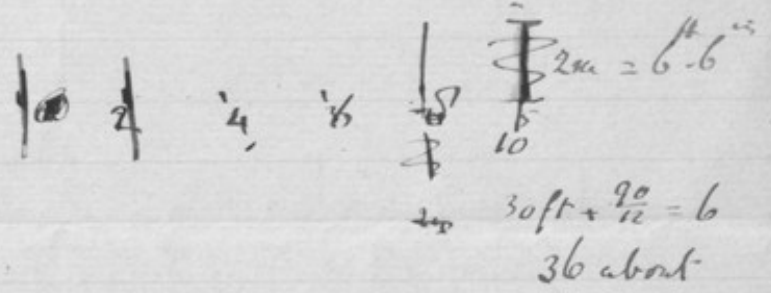 2 4 6 8 2m = 6ft 6ins
10
30ft + 90/12 = 6
36 about